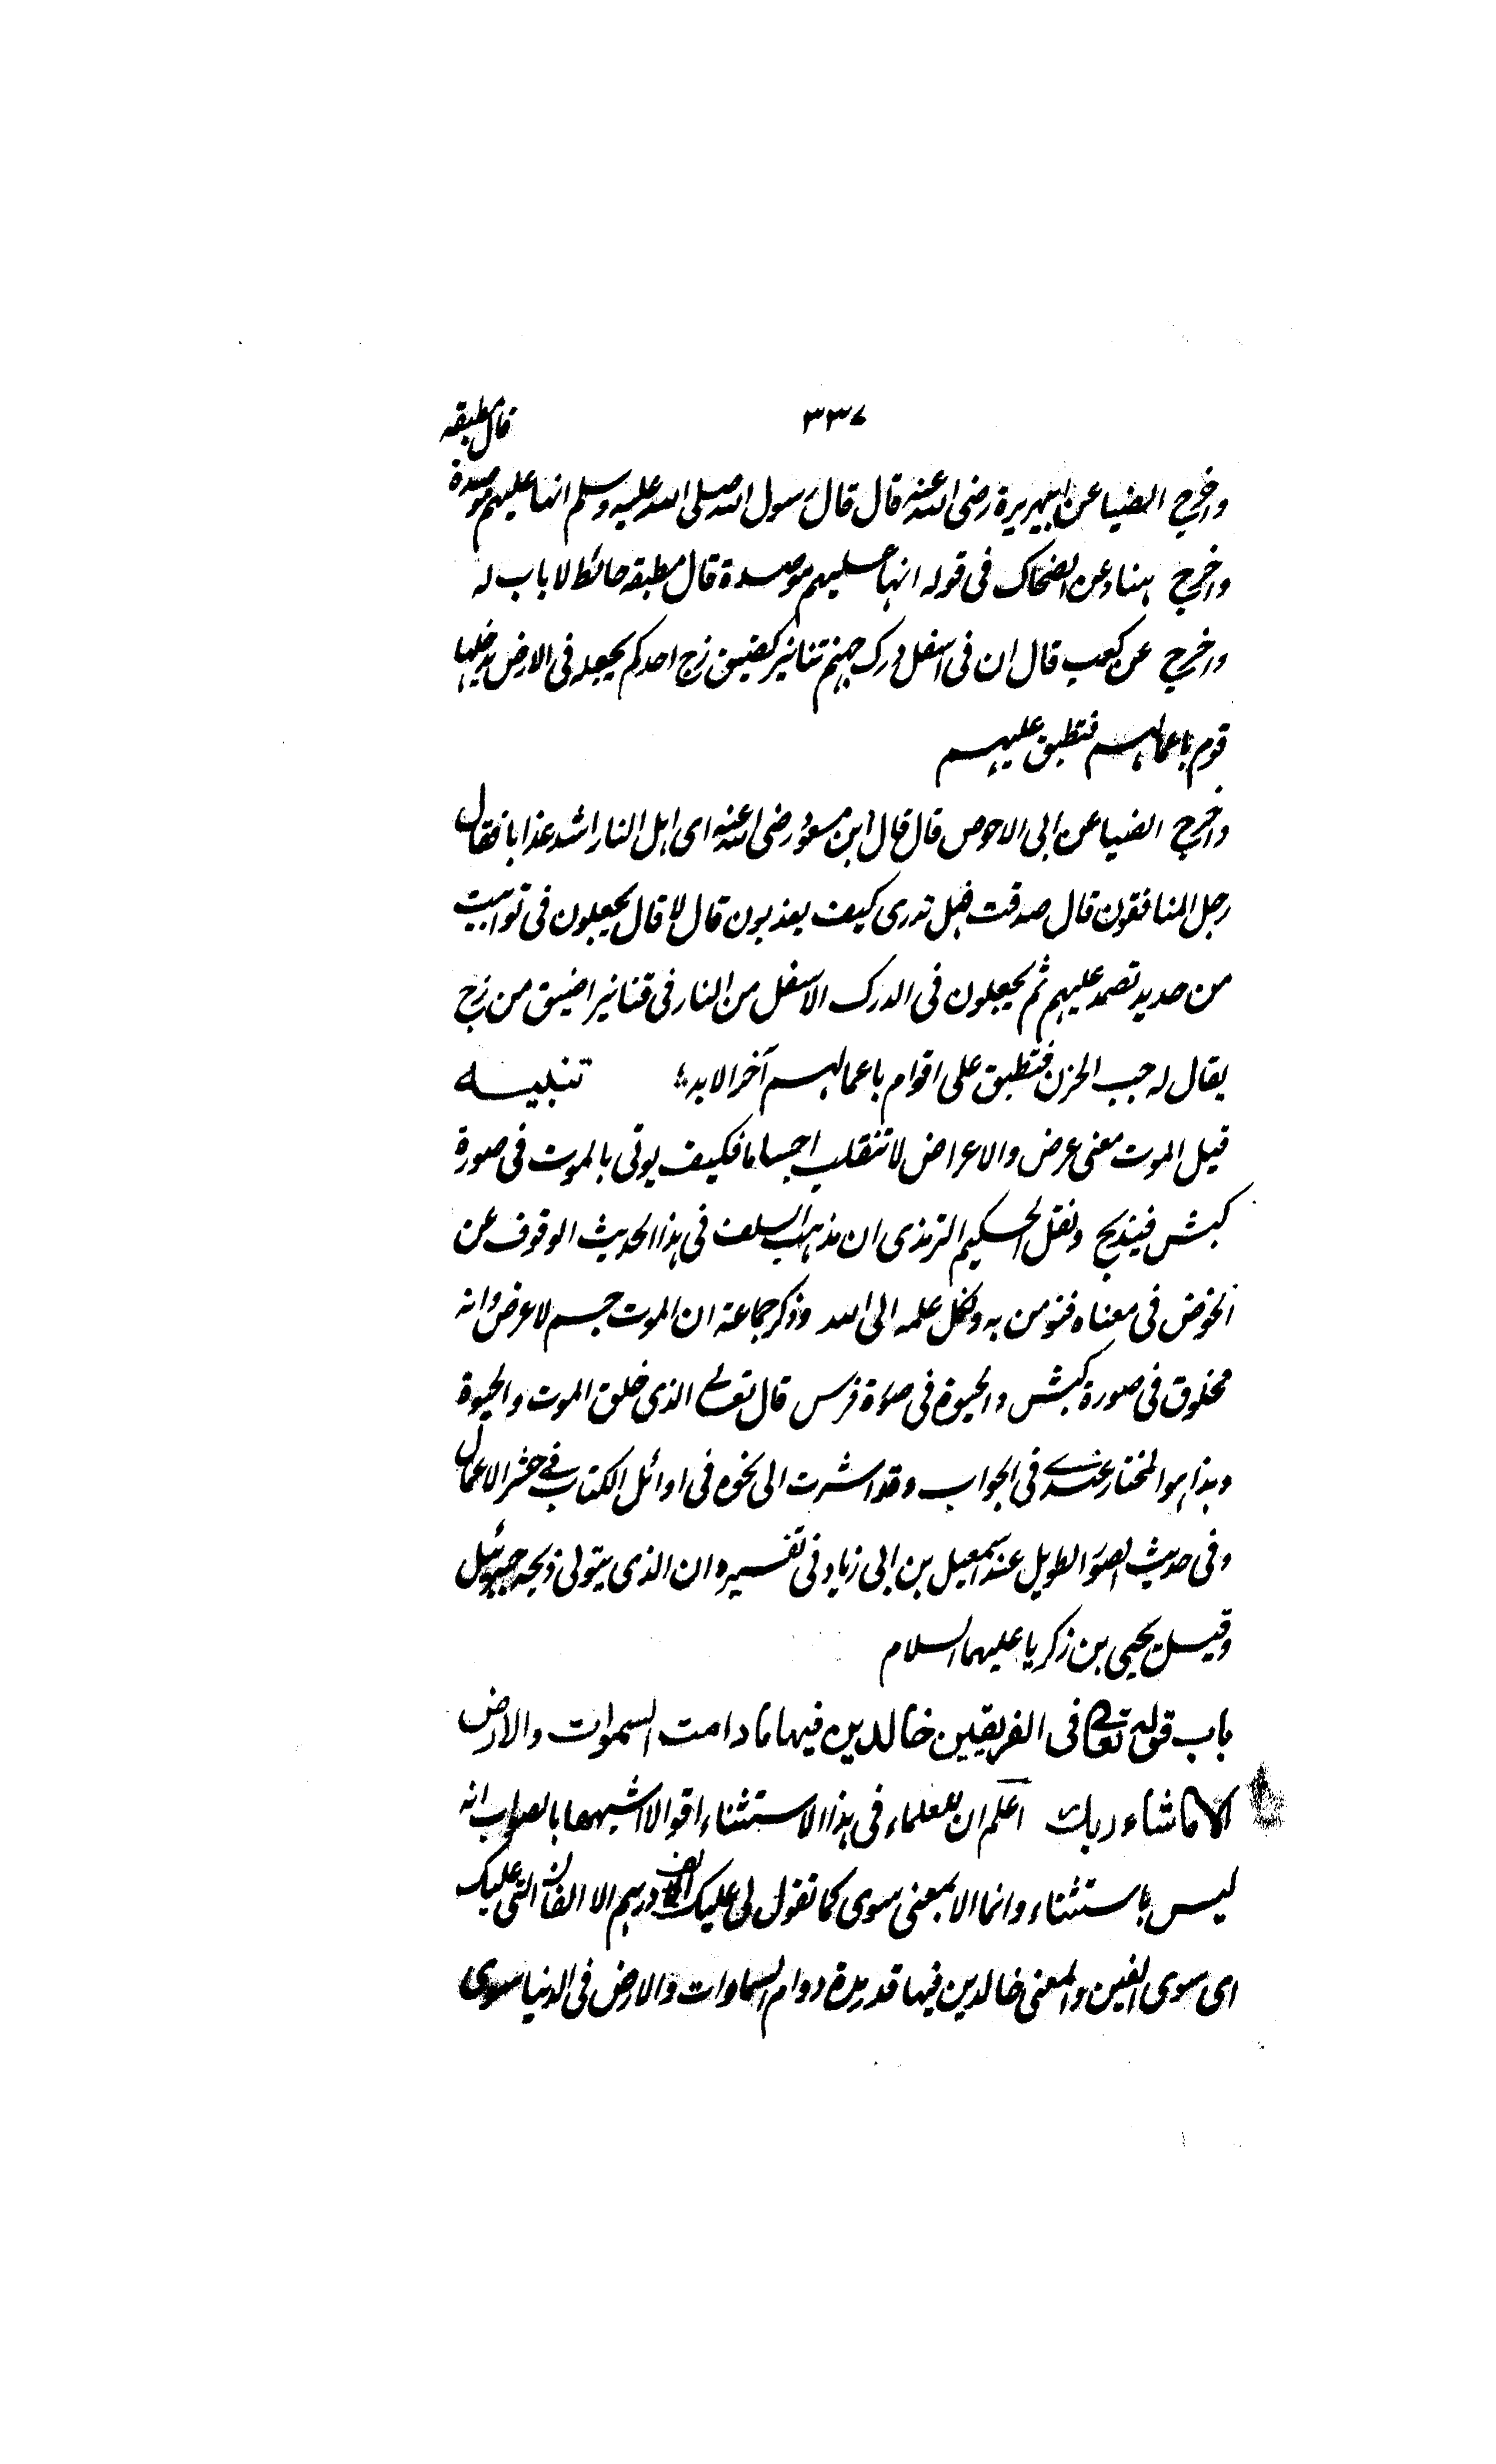 ٣٣٧
قال مطبقه
واخرج ايضا عن ابيهريرة رضى الله عنه قال قال رسول الله صلى الله عليه وسلم انها عليهم موصدة
واخرج هناد عن الضحاك فى قوله انها عليهم موصدة قال مطبقه حائط لا باب له
واخرج عن كعب قال ان فى اسفل درك جهنم تنانير كضيق زج احدكم يجعله فى الارض يدخلها
قوم باعمالهم فتطبق عليهم
واخرج ايضا عن ابى الاحوص قال قال ابن مسعود رضى الله عنه اى اهل النار اشد عذابا فقال
رجل المنافقون قال صدقت فهل تدرى كيف يعذبون قال لا قال يجعلون فى توابيت
من حديد تصمد عليهم ثم يجعلون فى الدرك الاسفل من النار فى تنانير اضيق من زج
يقال له جب الحزن فتطبق على اقوام باعمالهم آخر الابد تنبيه
قيل الموت معنى عرض والاعراض لا تنقلب اجساما فكيف يوتى بالموت فى صورة
كبش فيذبح ونقل الحكيم الترمذى ان مذهب السلف فى هذا الحديث الوقوف عن
الخوض فى معناه فنومن به ونكل علمه الى الله وذكر جماعة ان الموت جسم لا عرض وانه
مخلوق فى صورة كبش والحيوة فى صورة فرس قال تعالى الذى خلق الموت والحيوة
وهذا هو المختار عندى فى الجواب وقد اشرت الى نحوه فى اوائل الكتاب فى حشر الاعمال
وفى حديث الصور الطويل عند اسمعيل بن ابى زياد فى تفسيره ان الذى يتولى ذبحه جبرئيل
وقيل يحيى بن زكريا عليهما السلام
باب قوله تعالى فى الفريقين خالدين فيها ما دامت السموات والارض
الا ما شاء ربك اعلم ان للعلماء فى هذا الاستثناء اقوالا اشبهها بالصواب انه
ليس باستثناء وانما الا بمعنى سوى كما تقول لى عليك الف درهم الا الفان التى عليك
اى سوى الفين والمعنى خالدين فيها قدر مدة دوام السماوات والارض فى الدنيا سوى